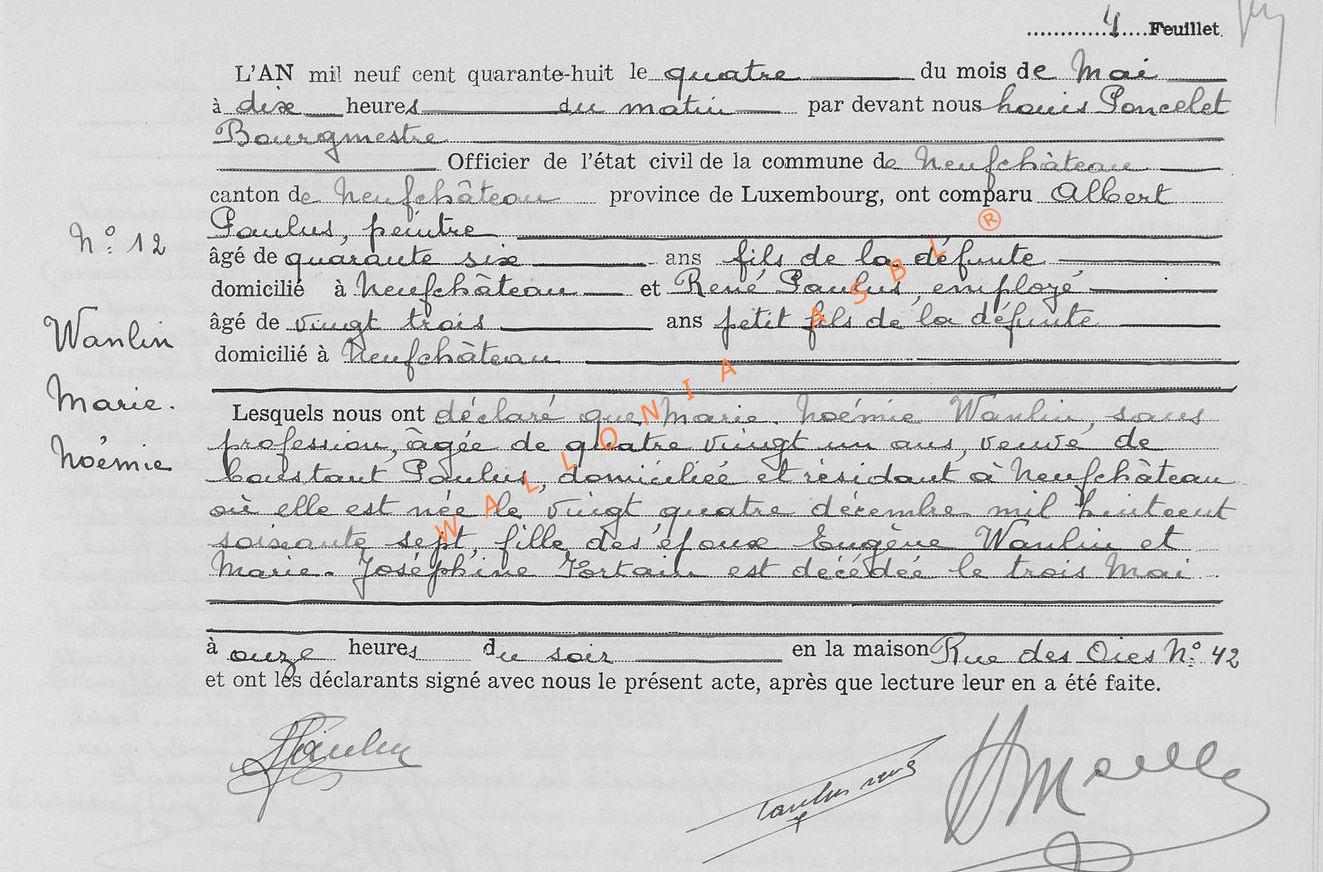 4 Feuillet
L'AN mil neuf cent quarante-huit le quatre du mois de Mai
à dix heures du matin par devant nous Louis Poncelet
Bourgmestre
Officier de l'état civil de la commune de Neufchâteau
canton de Neufchâteau province de Luxembourg, ont comparu Albert
Paulus, peintre
âgé de quarante six ans fils de la défunte
domicilié à Neufchâteau et René Paulus, employé
âgé de vingt trois ans petit fils de la défunte
domicilié à Neufchâteau
N° 12
Wanlin
Marie.
Noémie
Lesquels nous ont déclaré que Marie. Noémie Wanlin, sans
profession, âgée de quatre vingt un ans, veuve de
Constant Paulus, domiciliée et résidant à Neufchâteau
où elle est née le vingt quatre décembre mil huitcent
soixante sept, fille des époux Eugène Wanlin et
Marie. Joséphine est décédée le trois Mai
à onze heures du soir en la maison Rue des Oies N° 42
et ont les déclarants signé avec nous le présent acte, après que lecture leur en a été faite.
Paulus rené
WALLONIA ASBL ®